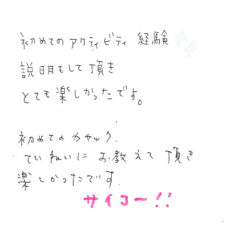 初めてのアクティビティ 経験
説明をして頂き
とても楽しかったです。
初めてのカヤック.
ていねいにお教えて頂き
楽しかったです.
サイコー!!